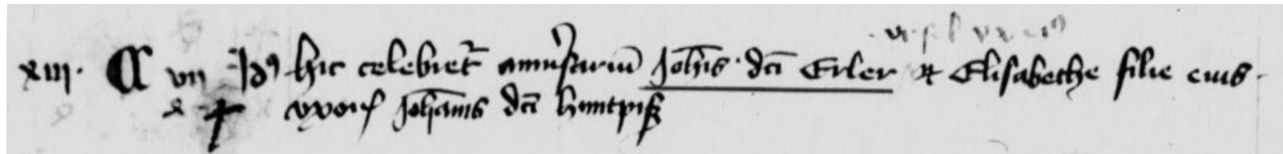 xiii. A vii Id9 hic celebret anniversariu Johis dci Erler et Elisabethe filie eius
uxoris Johanis dci huntpiß